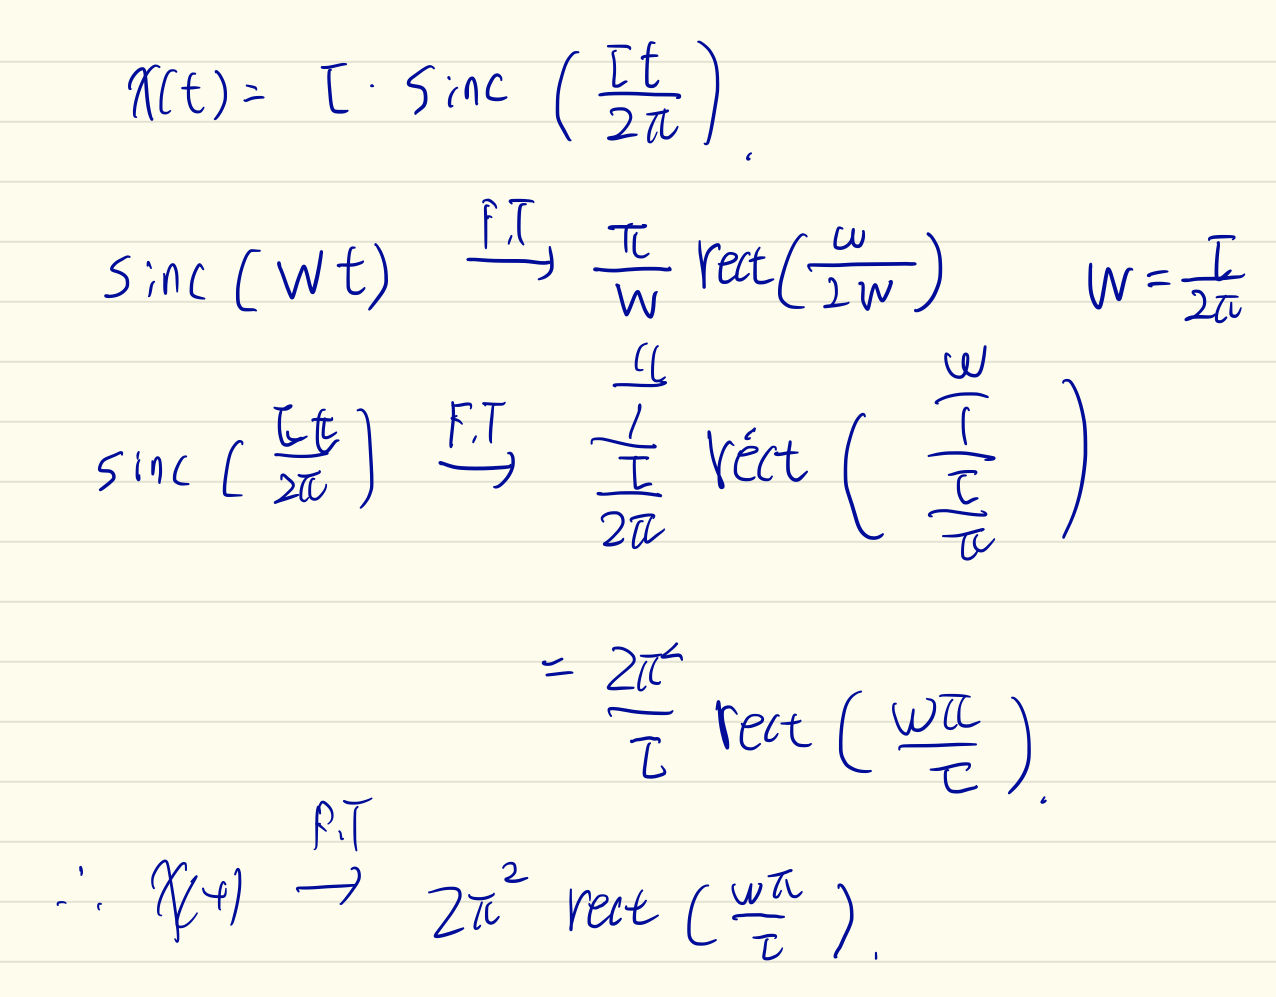 x(t) = τ · sinc (τt/2π).
sinc (Wt) F.T→ π/W rect(ω/2W) W = τ/2π
sinc (τt/2π) F.T→ π/(1/(τ/2π)) rect (ω/(1/(τ/π)))
= 2π²/τ rect (ωπ/τ).
∴ x(t) F.T→ 2π² rect (ωπ/τ).